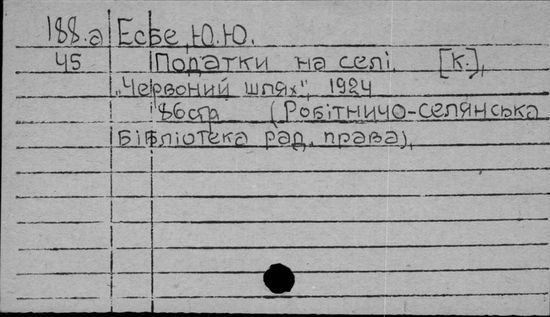 188.а Есбе Ю.Ю.
45 Податки на селі. [К.],
„Червоний шлях", 1924
86стр (Робітничо-селянська
Бібліотека рад. права),